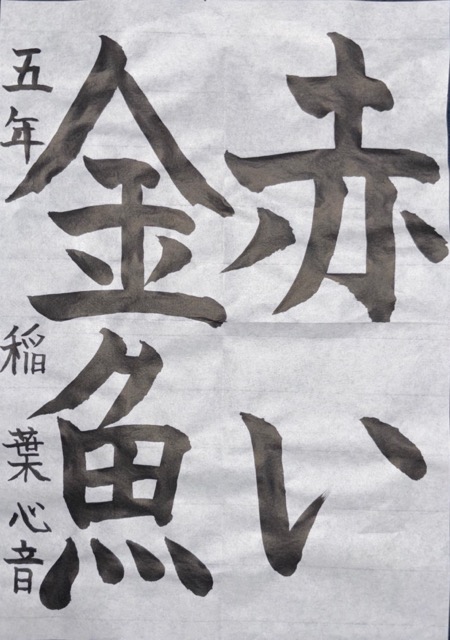 赤い
金魚
五年 稲葉心音